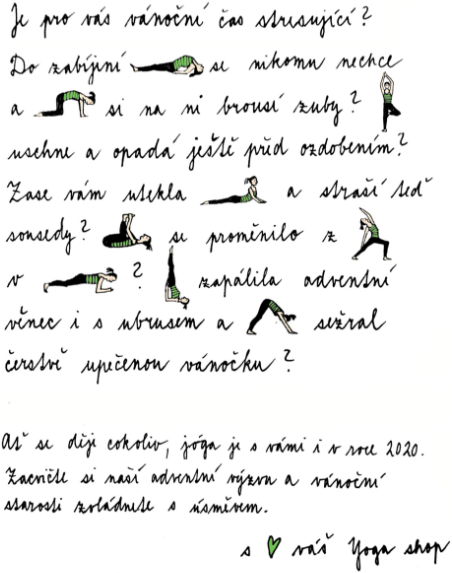 Je pro vás vánoční čas stresující?
Do zabíjení se nikomu nechce
a si na ni brousí zuby?
uschne a opadá ještě před ozdobením?
Zase vám utekla a straší teď
sousedy? se proměnilo z
v ? zapálila adventní
věnec i s ubrusem a sežral
čerstvě upečenou vánočku?
Ať se děje cokoliv, jóga je s vámi i v roce 2020.
Zacvičte si naší adventní výzvu a vánoční
starosti zvládnete s úsměvem.
s váš Yoga shop